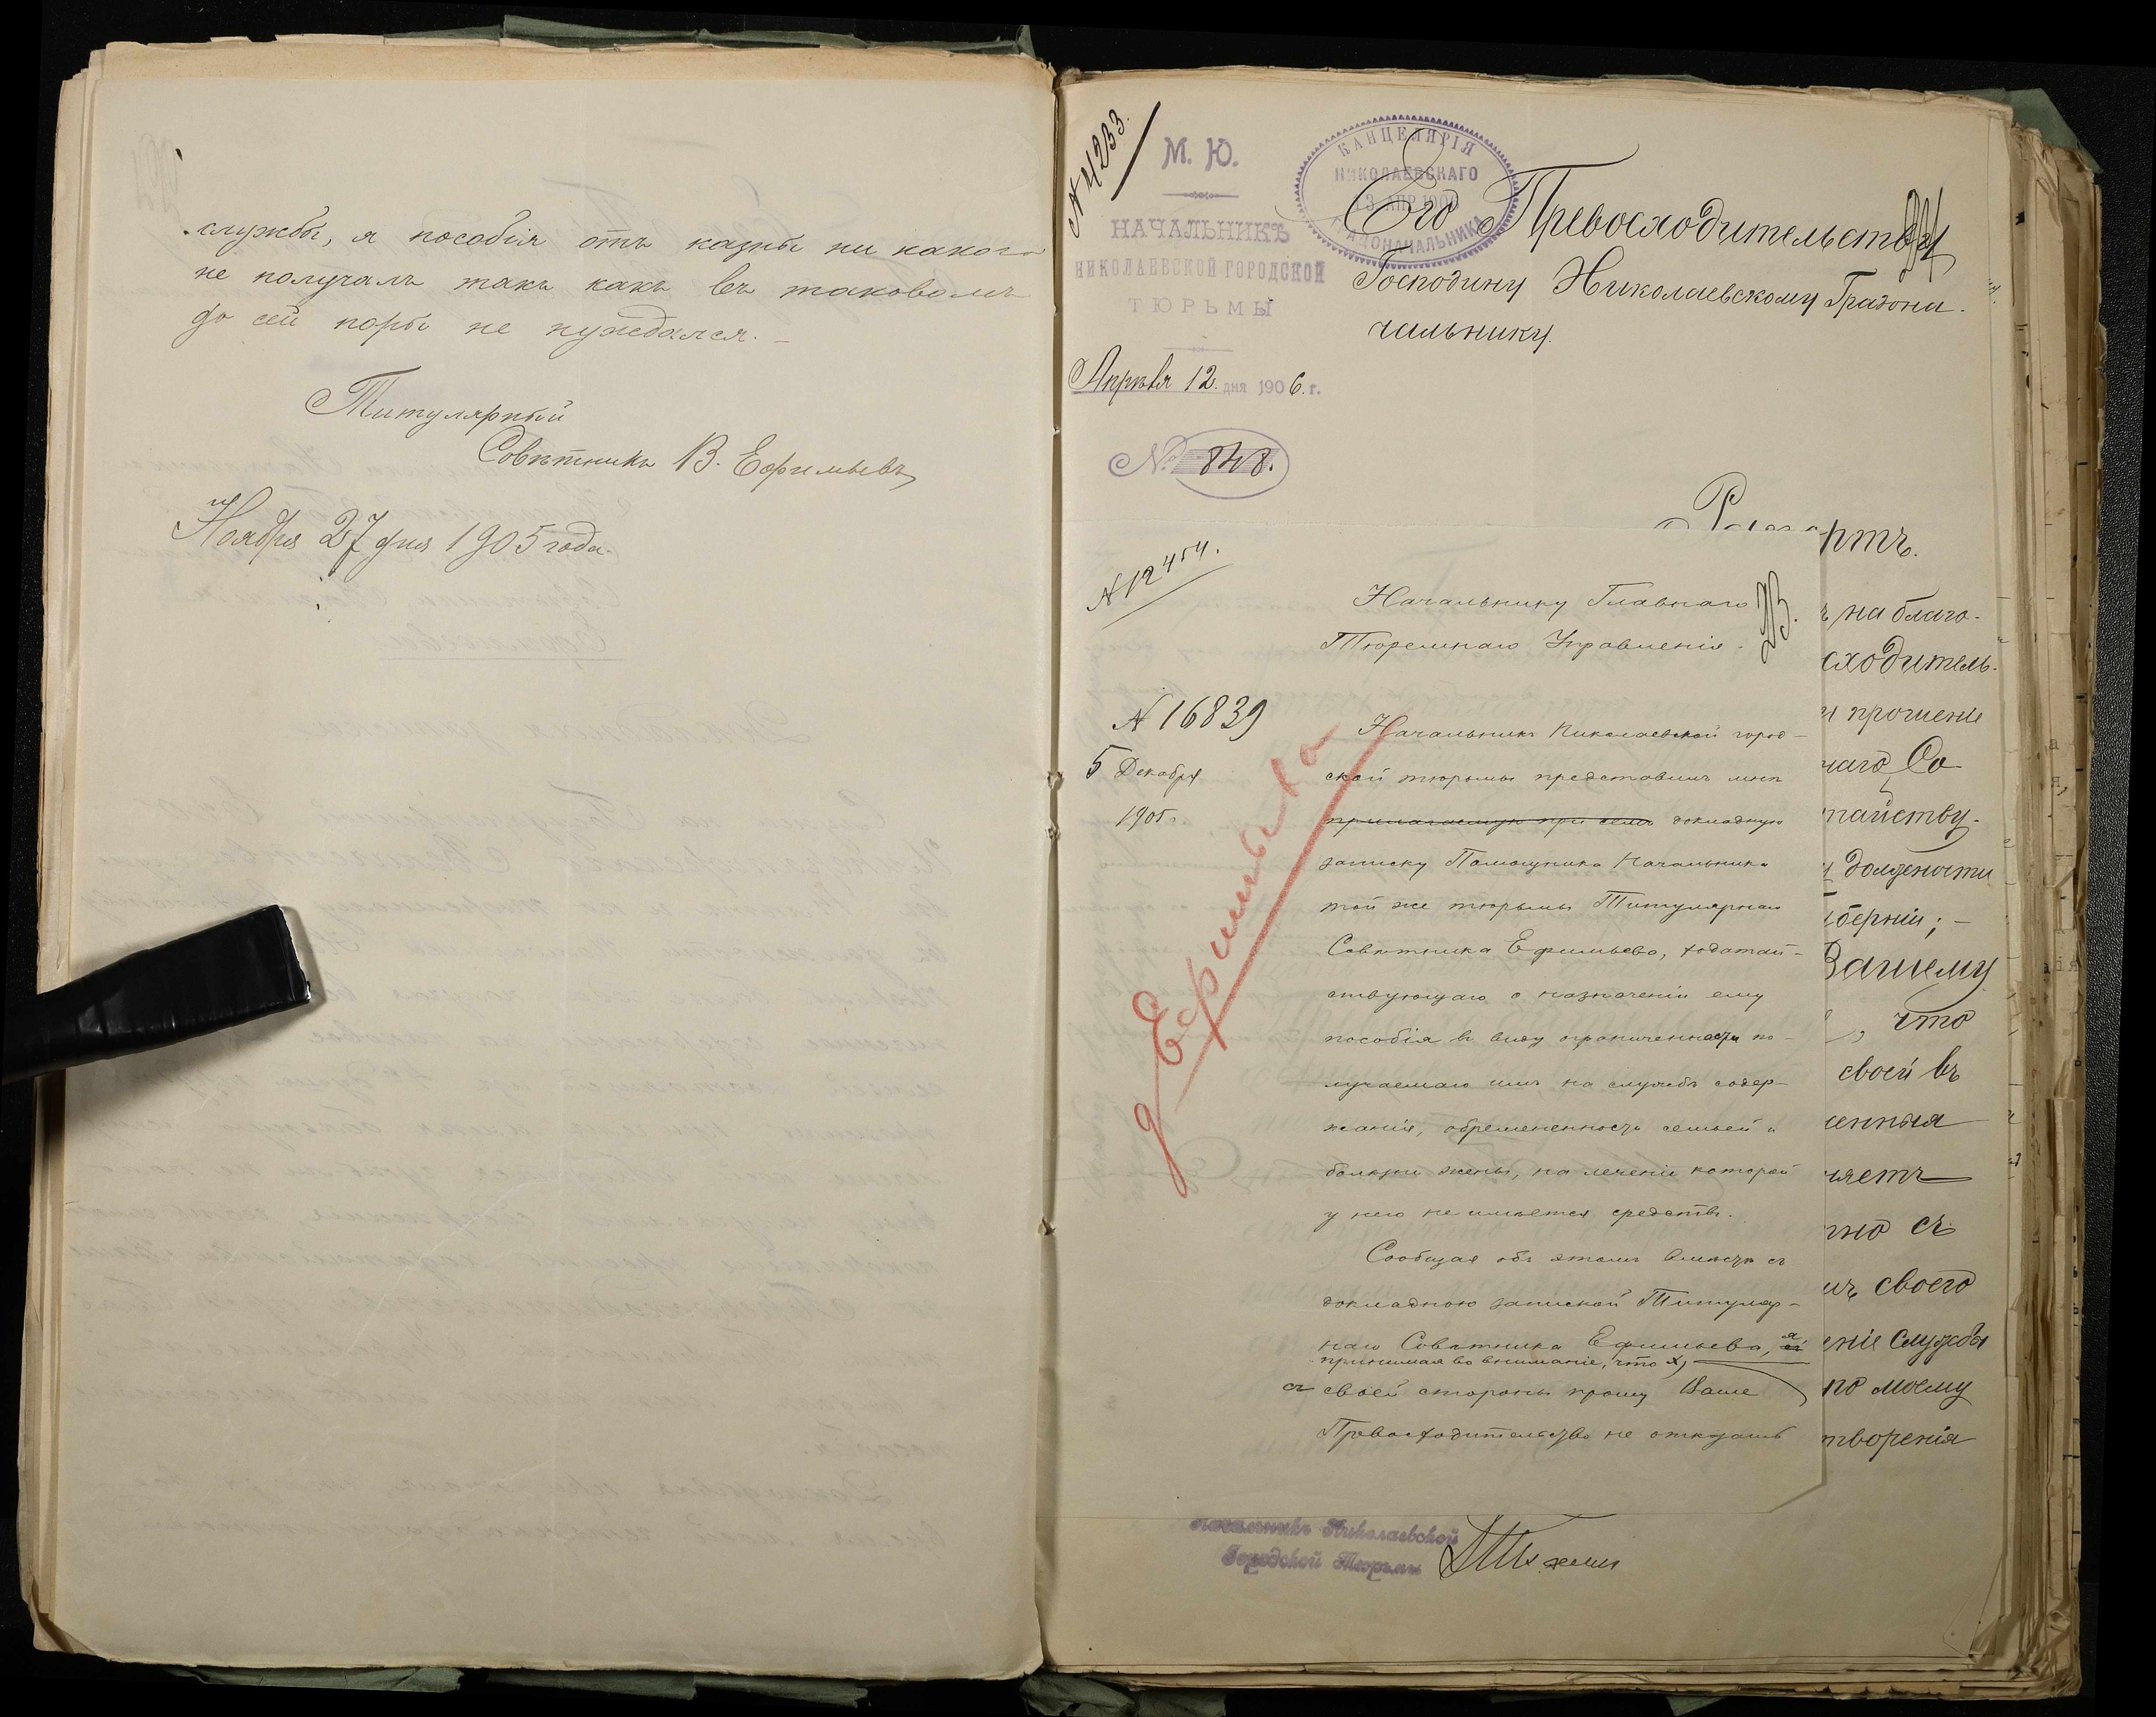 службы, я пособія отъ казны ни какого
не получалъ такъ какъ въ таковомъ
до сей поры не нуждался. –
Титулярный
Совѣтникъ В. Ефимьевъ
Ноября 27 дня 1905 года.
№ 4233.
М. Ю.
НАЧАЛЬНИКЪ
НИКОЛАЕВСКОЙ ГОРОДСКОЙ
ТЮРЬМЫ
Апрѣля 12 дня 1906 г.
№ 848.
КАНЦЕЛЯРІЯ
НИКОЛАЕВСКАГО
3 АПР 190
ГРАДОНАЧАЛЬНИКА
Его Превосходительству
24
Господину Николаевскому Градона-
чальнику.
Рапортъ.
№ 12454.
Начальнику Главнаго
Тюремнаго Управленія.
23.
№ 16839
5 Декабря
1905 г.
д Ефимьева
Начальникъ Николаевской город-
ской тюрьмы представилъ мнѣ
прилагаемую при семъ докладную
записку Помощника Начальника
той же тюрьмы Титулярнаго
Совѣтника Ефимьева, ходатай-
ствующаго о назначеніи ему
пособія въ виду ограниченности по-
лучаемаго имъ на службѣ содер-
жанія, обремененность семьей и
болѣзни жены, на леченіе которой
у него не имѣется средствъ.
Сообщая объ этомъ вмѣстѣ съ
докладною запиской Титуляр-
наго Совѣтника Ефимьева, я
принимая во вниманіе, что х)
съ своей стороны прошу Ваше
Превосходительство не отказать
ъ на благо-
сходитель-
и прошеніе
наго Со
тайству-
должности
берніи; –
Вашему
, что
своей въ
енныя
ляетъ
но съ
своего
еніе службы
по моему
творенія
Начальникъ Николаевской
Городской Тюрьмы